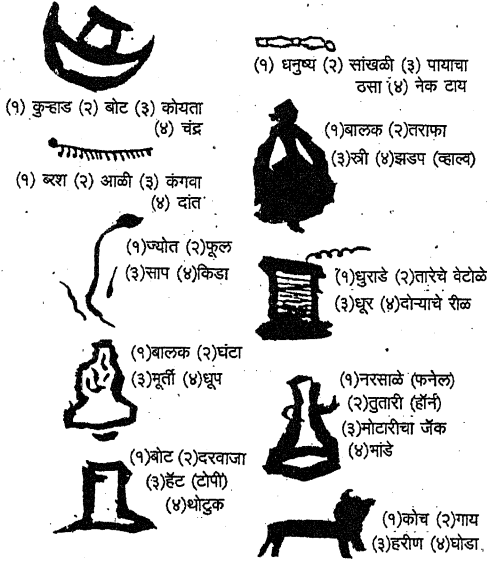 (१) कुऱ्हाड (२) बोट (३) कोयता
(४) चंद्र
(१) ब्रश (२) आळी (३) कंगवा
(४) दांत
(१)ज्योत (२)फूल
(३)साप (४)किडा
(१)बालक (२)घंटा
(३)मूर्ती (४)धूप
(१)बोट (२)दरवाजा
(३)हॅट (टोपी)
(४)थोटुक
(१) धनुष्य (२) सांखळी (३) पायाचा
ठसा (४) नेक टाय
(१)बालक (२)तराफा
(३)स्री (४)झडप (व्हाल्व)
(१)धुराडे (२)तारेचे वेटोळे
(३)धूर (४)दोऱ्याचे रीळ
(१)नरसाळे (फनेल)
(२)तुतारी (हॉर्न)
(३)मोटारीचा जॅक
(४)मांडे
(१)कोच (२)गाय
(३)हरीण (४)घोडा